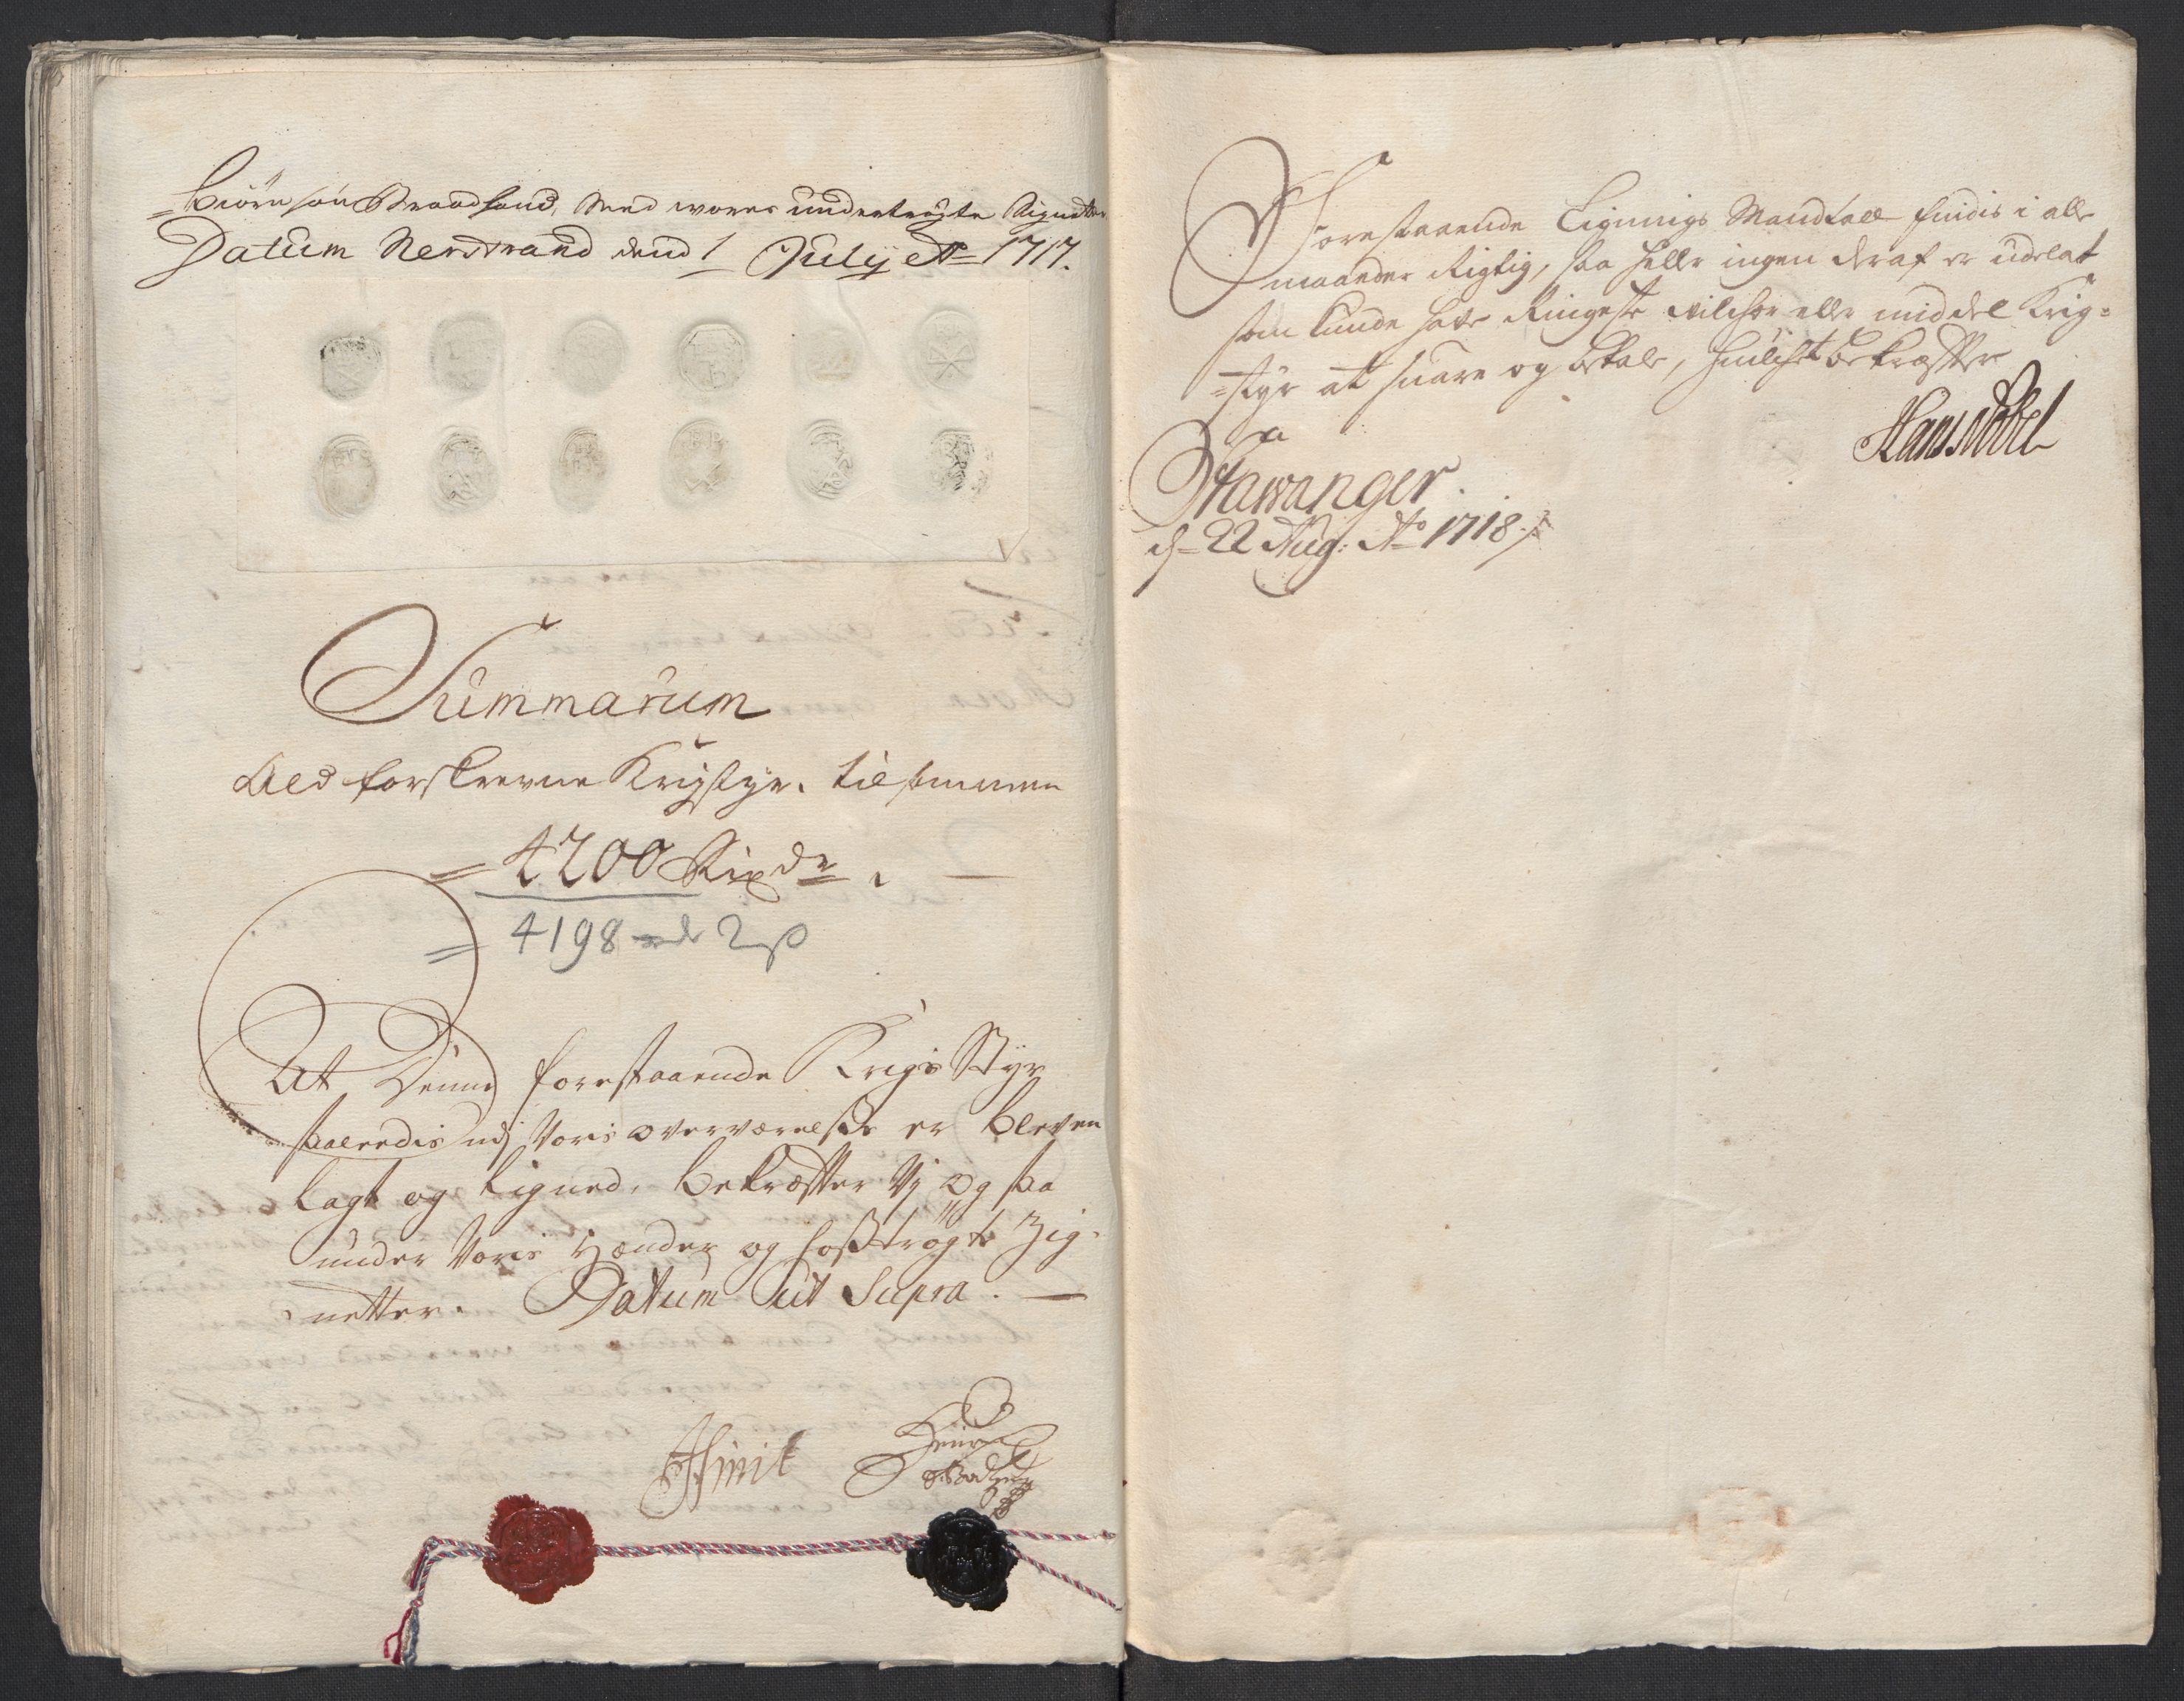 =Biørnsøn Braadland, Med wores undertrÿgte Signeter
Datum Nerstrand dend 1 Julÿ Ao 1717.
Summarum
Ald forskrevne Krigstyr. til summen
= 4200 Rixdr.
= 4198 rd 2 ß
At Denne forestaaende Krigs Styr
saaledis udj Voris overværelse er bleven
lagt og Ligned, bekræfter Vj og saa
under Voris Hænder og hostrøgte Zig-
netter. Datum Ut Supra.
Smit
Forestaaende Lignings Mandtall findis i alle
maader Rigtig, saa heller ingen deraf er udelat
som kunde have Ringeste vilchor eller middel Krig=
=styr at svare og betale, hvilchet bekræfter
Hans Nobel
Stawanger
d- 22 Aug: Ao 1718